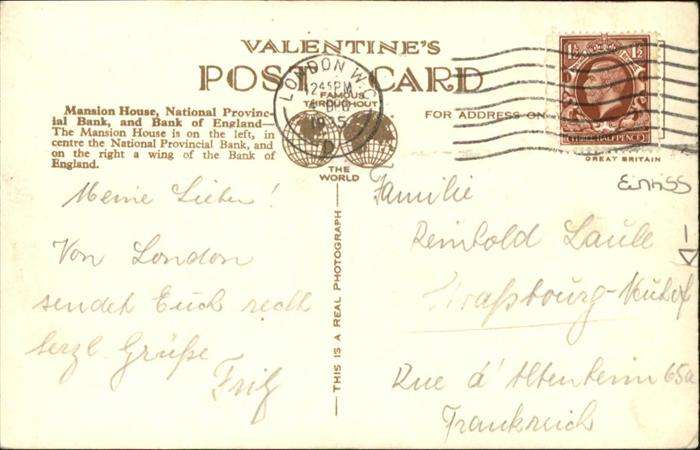 VALENTINE'S
POST CARD
FAMOUS
THROUGHOUT
THE
WORLD
Mansion House, National Provinc-
ial Bank, and Bank of England—
The Mansion House is on the left, in
centre the National Provincial Bank, and
on the right a wing of the Bank of
England.
FOR ADDRESS ON
LONDON W.C.
1935
D
1½
GREAT BRITAIN
THIS IS A REAL PHOTOGRAPH
Meine Lieben!
Von London
sendet Euch recht
herzl. Grüße
Fritz
Familie
Reinhold Laule
Straßbourg-
Rue d'Altenheim 65a
Frankreich